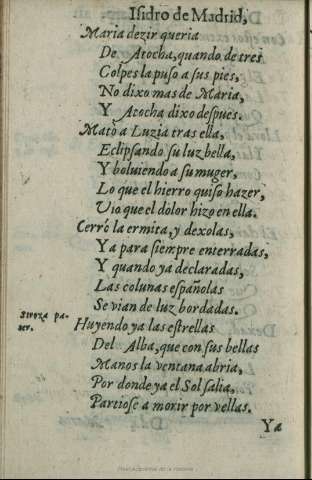 Isidro de Madrid,
Maria dezir queria
De Atocha, quando de tres
Golpes la puso a sus pies,
No dixo mas de Maria,
Y Atocha dixo despues.
Matò a Luzia tras ella,
Eclipsando su luz bella,
Y boluiendo a su muger,
Lo que el hierro quiso hazer,
Vio que el dolor hizo en ella.
Cerrò la ermita, y dexolas,
Ya para siempre enterradas,
Y quando ya declaradas,
Las colunas españolas
Se vian de luz bordadas.
Huyendo ya las estrellas
Del Alba, que con sus bellas
Manos la ventana abria,
Por donde ya el Sol salia,
Partiose a morir por vellas.
Ya